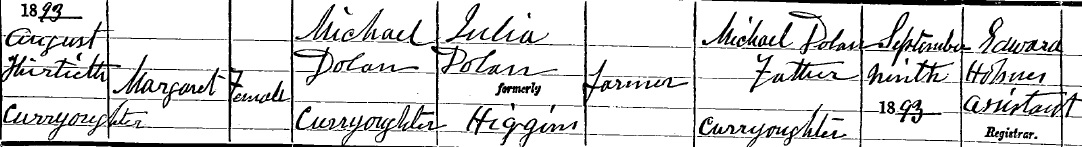 1893
August
Thirtieth
Curryoughter
Margaret
Female
Michael
Dolan
Curryoughter
Julia
Dolan
formerly
Higgins
Farmer
Michael Dolan
Father
Curryoughter
September
Ninth
1893
Edward
Holmes
Assistant
Registrar.